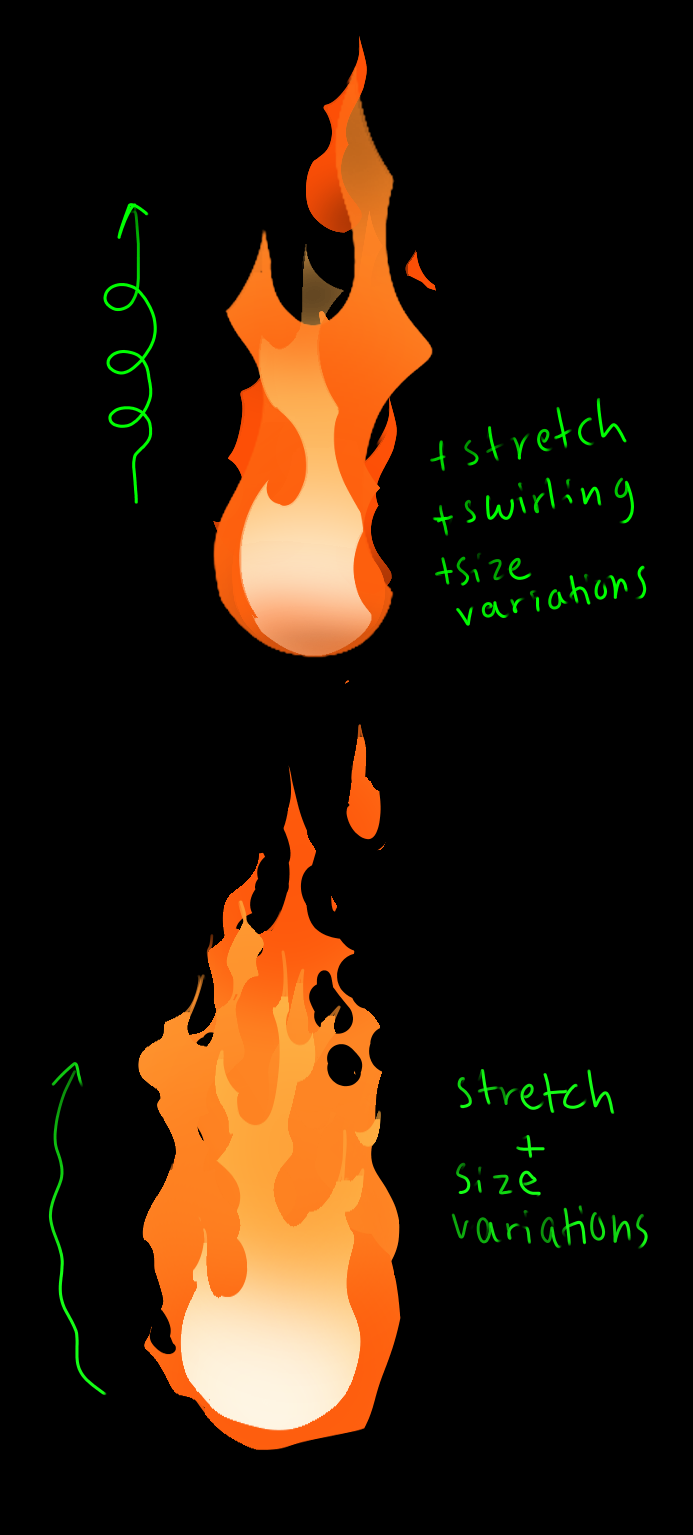 + stretch
+ swirling
+ size
variations
stretch
+
size
variations